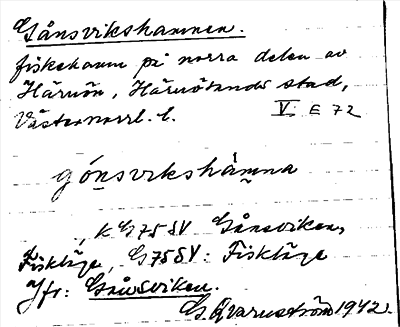 Gånsvikshamnen.
fiskehamn på norra delen av
Härnön, Härnösands stad,
Västernorrl. l.
V E 72
gånsvikshamna
, K G75SV Gånsviken,
Fiskläge, G75SV: Fiskläge
Jfr: Gånsviken.
G. Qvarnström 1942.